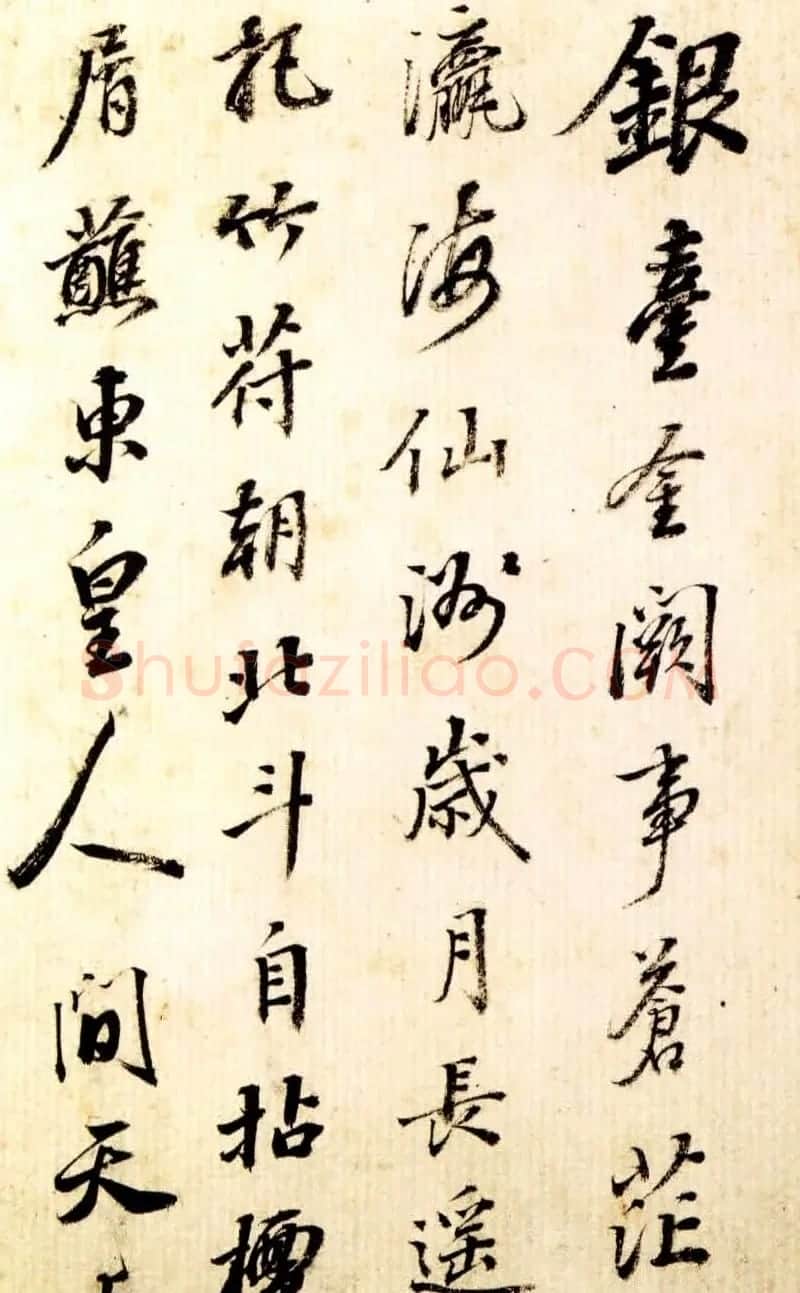 銀臺金闕事蒼茫
瀛海仙洲歲月長遥
把竹符朝北斗自拈檀
屑蘸東皇人間天
Shufaziliao.COM